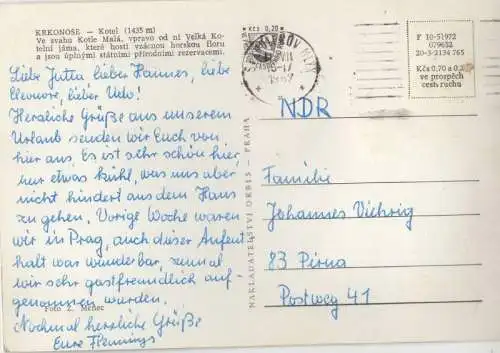 KRKONOŠE — Kotel (1435 m)
Ve svahu Kotle Malá, vpravo od ní Velká Ko-
telní jáma, které hostí vzácnou horskou floru
a jsou úplnými státními přírodními rezervacemi.
Liebe Jutta lieber Hannes, liebe
Eleonore, lieber Udo!
Herzliche Grüße aus unserem
Urlaub senden wir Euch von
hier aus. Es ist sehr schön hier,
nur etwas kühl, was uns aber
nicht hindert aus dem Haus
zu gehen. Vorige Woche waren
wir in Prag, auch dieser Aufent
halt war wunderbar, zumal
wir sehr gastfreundlich auf-
genommen wurden.
Foto Z.
Nochmal herzliche Grüße
Eure Flemmings
NAKLADATELSTVÍ ORBIS - PRAHA
Kčs 0,20
F 10-51972
079652
20-3-2134 765
Kčs 0,70 a 0,2
ve prospěch
cest. ruchu
NDR
Familie
Johannes Viehrig
83 Pirna
Postweg 41